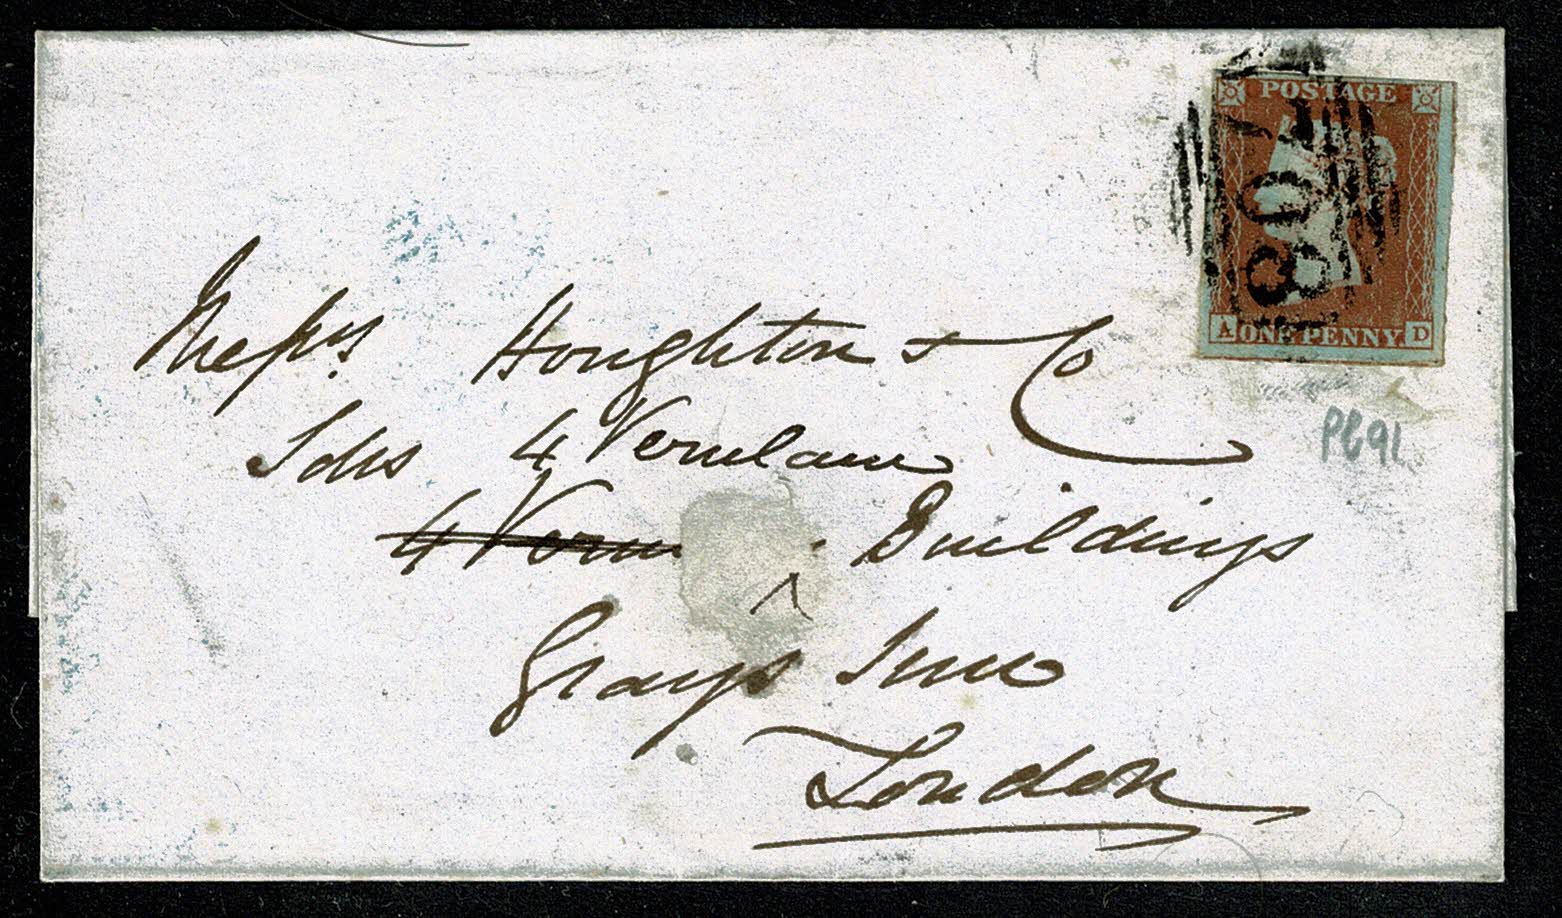 POSTAGE
A ONE PENNY D
PB91
Messrs Houghton & Co
Sols 4 Verulam
Buildings
Grays Inn
London